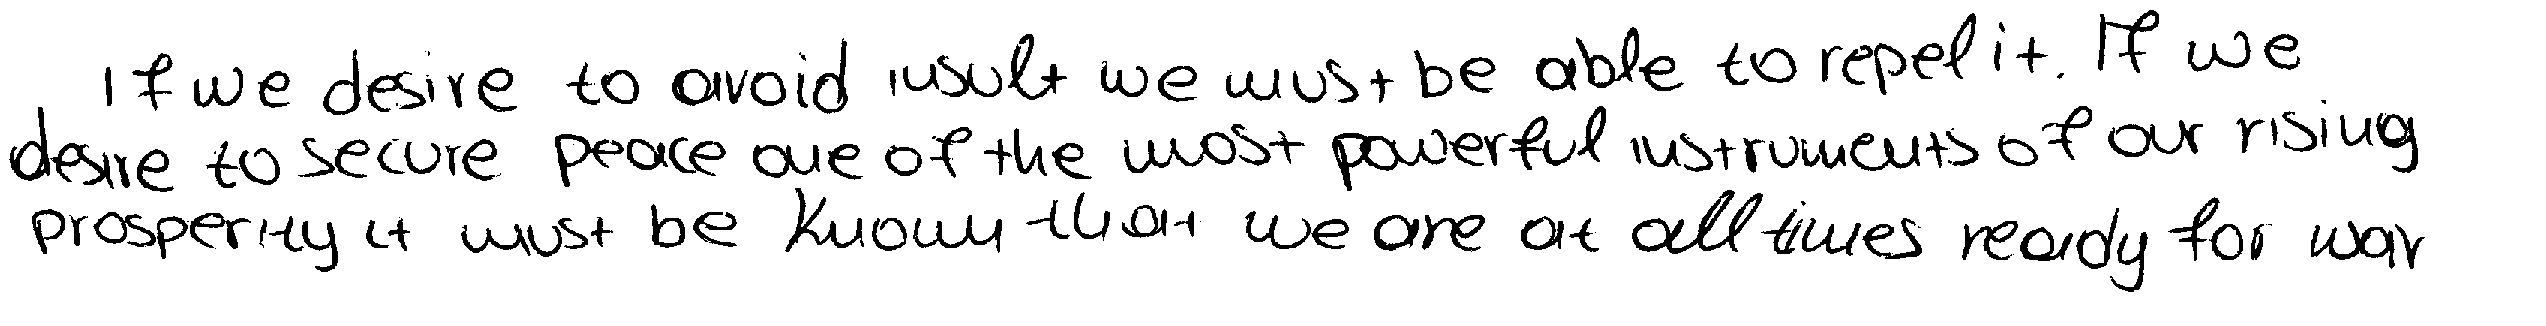 If we desire to avoid insult we must be able to repel it. If we
desire to secure peace one of the most powerful instruments of our rising
prosperity it must be known that we are at all times ready for war